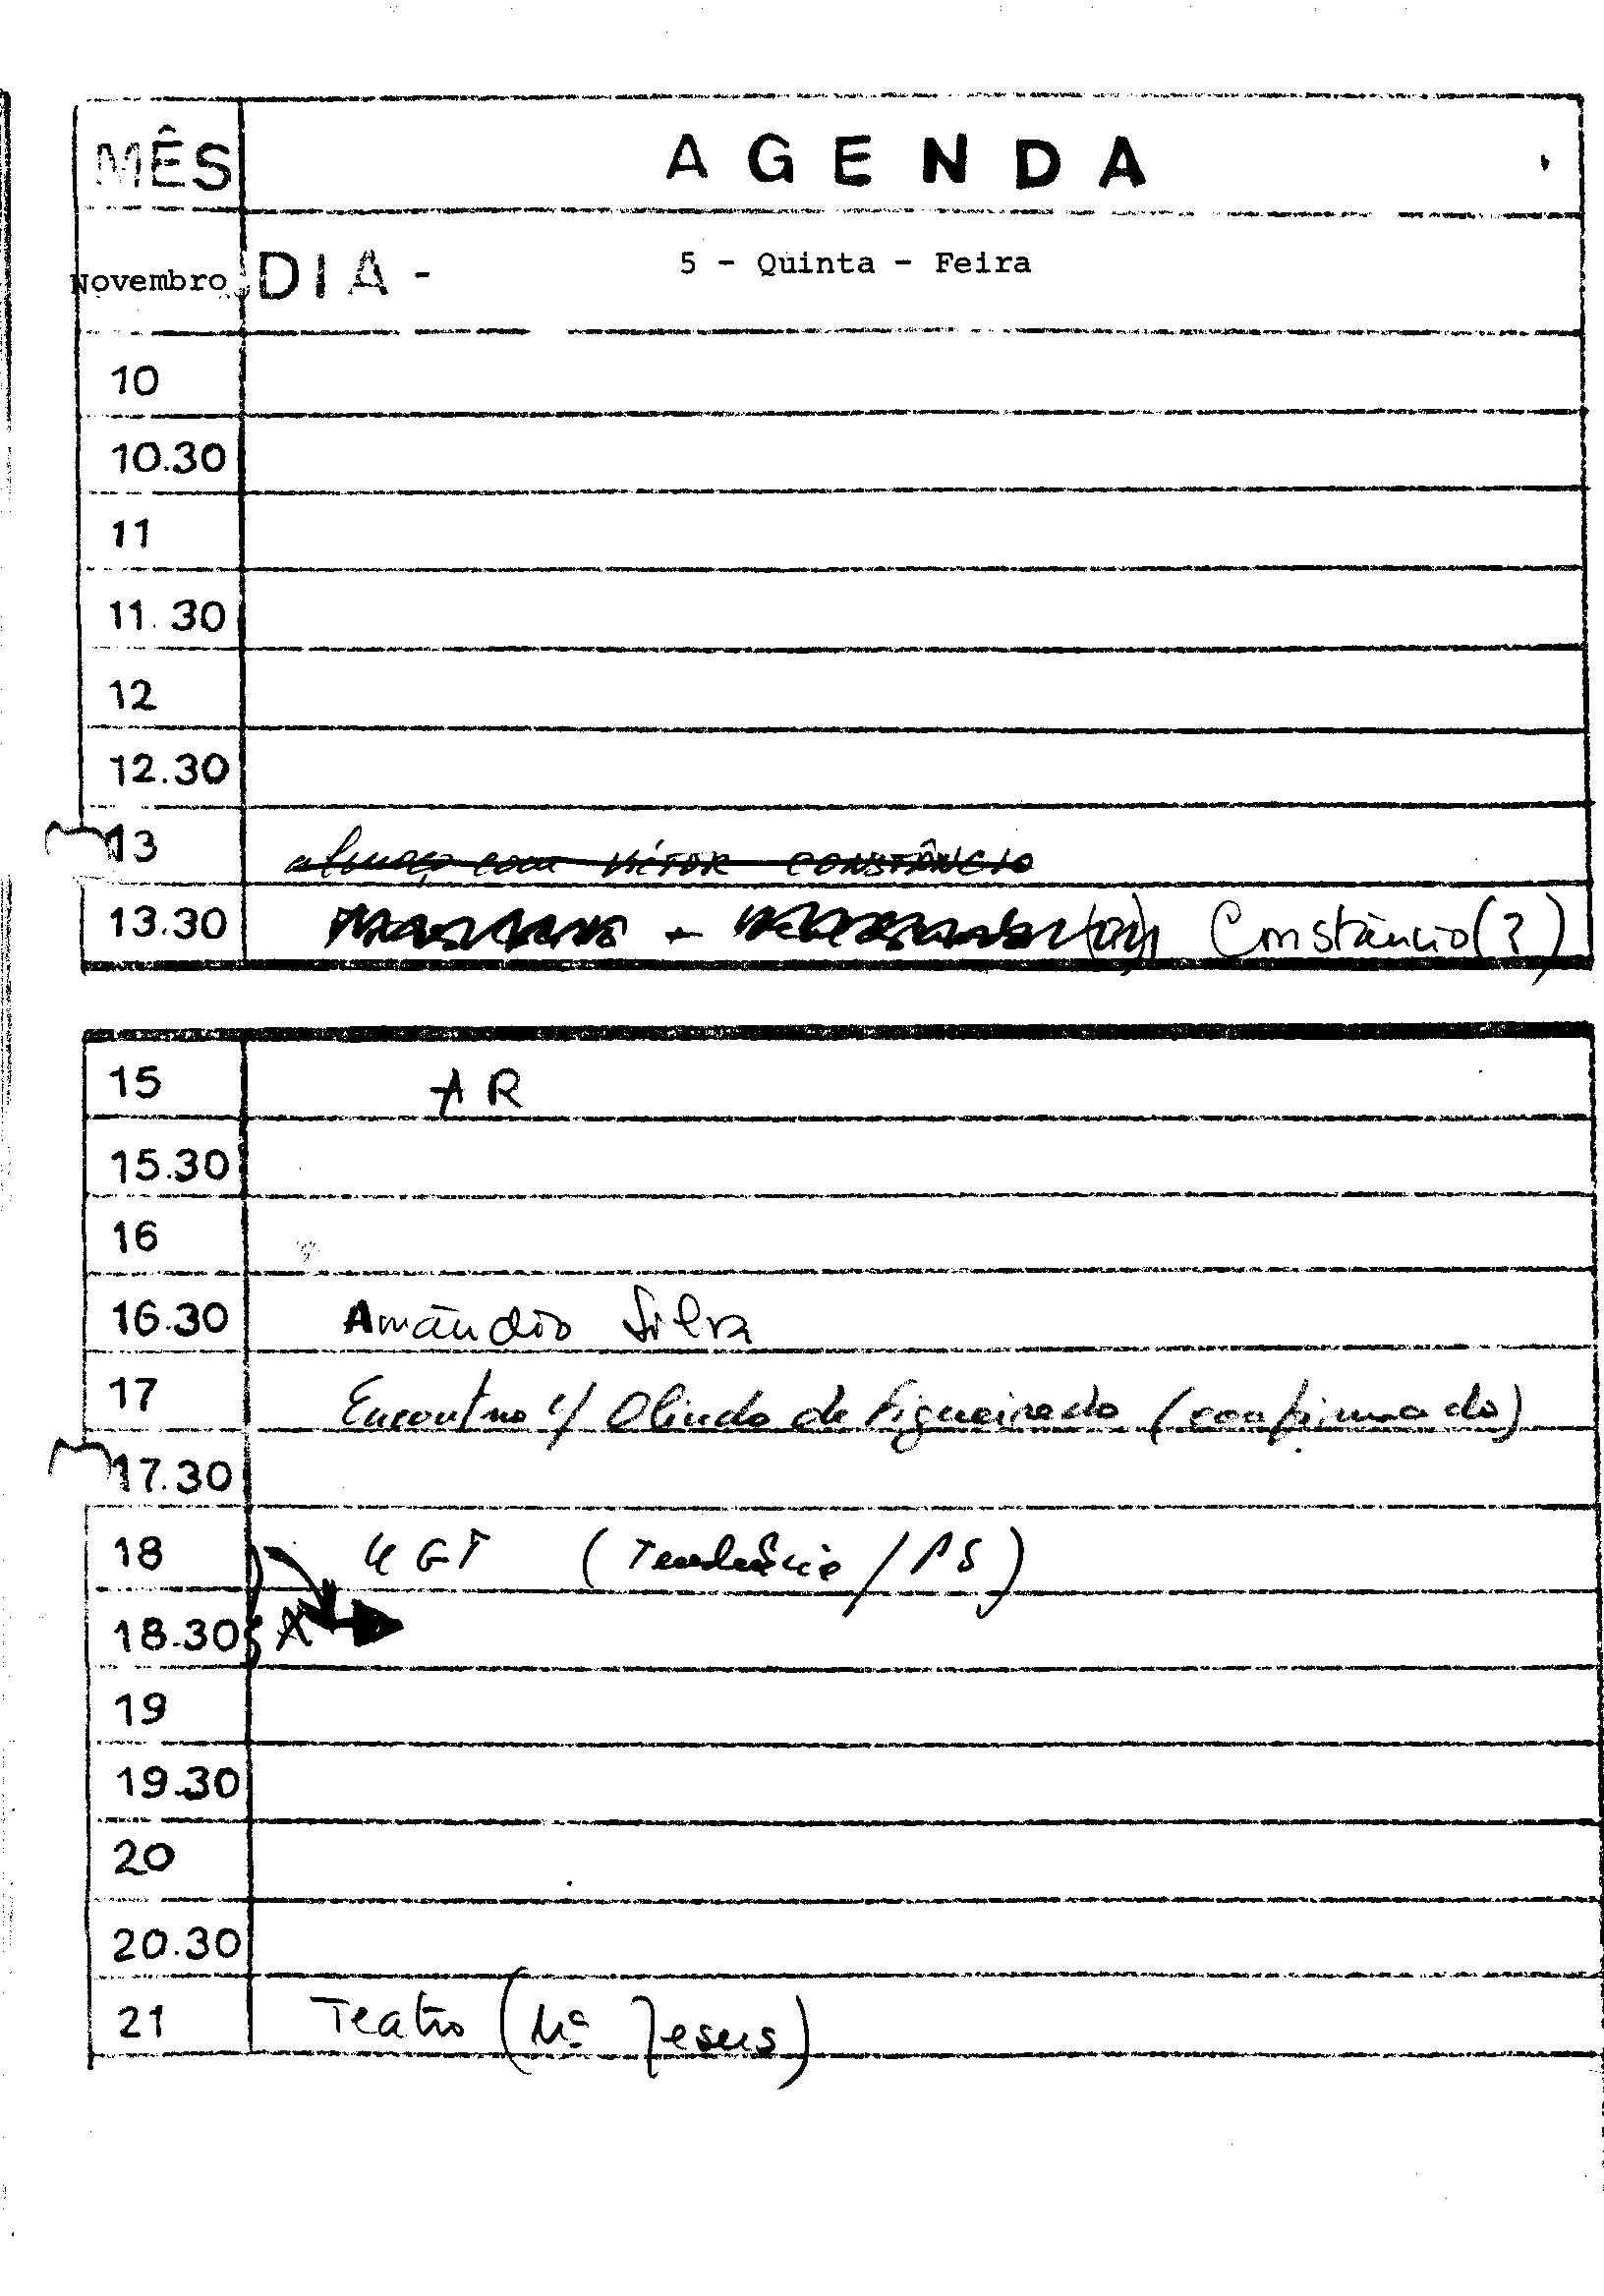 MÊS AGENDA
Novembro DIA - 5 - Quinta - Feira
10
10.30
11
11.30
12
12.30
13 almoço com VICTOR CONSTÂNCIO
13.30 Constâncio (?)
15 AR
15.30
16
16.30 Amândio Silva
17 Encontro c/ Olindo de Figueiredo (confirmado)
17.30
18 UGT (Tendência / PS)
18.30
19
19.30
20
20.30
21 Teatro (Mª Jesus)